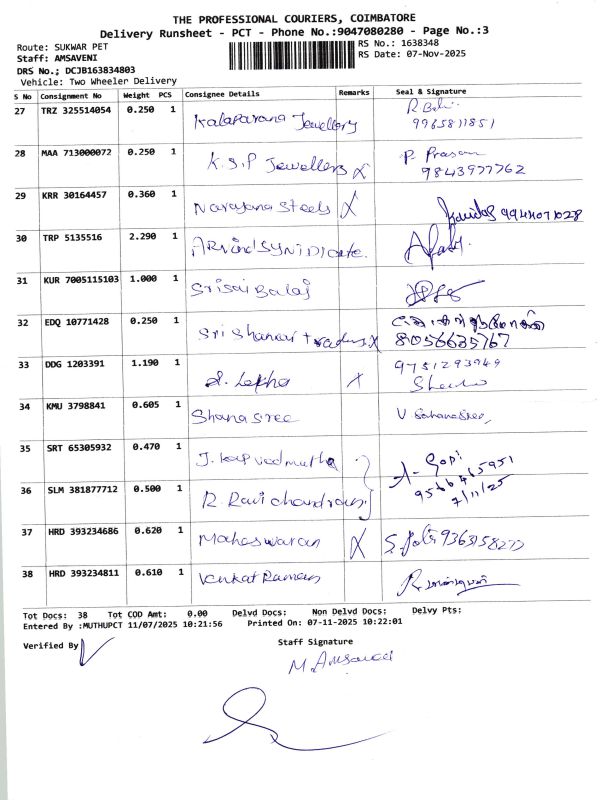 THE PROFESSIONAL COURIERS, COIMBATORE
Delivery Runsheet - PCT - Phone No.:9047080280 - Page No.:3
Route: SUKWAR PET
RS No.: 1638348
Staff: AMSAVENI
RS Date: 07-Nov-2025
DRS No.; DCJB163834803
Vehicle: Two Wheeler Delivery
S No Consignment No Weight PCS Consignee Details Remarks Seal & Signature
27 TRZ 325514054 0.250 1 Kalaparana Jewellery R.
9965811851
28 MAA 713000072 0.250 1 K.S.P Jewellers X P. Prasan
9843977762
29 KRR 30164457 0.360 1 Narayana Steels X 9944071028
30 TRP 5135516 2.290 1 ARvind SYNIDicate.
31 KUR 7005115103 1.000 1 Srisai Balaj
32 EDQ 10771428 0.250 1 Sri Shanari traders X
8056635767
33 DDG 1203391 1.190 1 S. Lekha X 9751293949
34 KMU 3798841 0.605 1 Shanasree V Sahanasree,
35 SRT 65305932 0.470 1 A- Gopi
9566465951
7/11/25
36 SLM 381877712 0.500 1 R. Ravichandran
37 HRD 393234686 0.620 1 Maheswaran X 9363158273
38 HRD 393234811 0.610 1 Venkat Raman
Tot Docs: 38 Tot COD Amt: 0.00 Delvd Docs: Non Delvd Docs: Delvy Pts:
Entered By :MUTHUPCT 11/07/2025 10:21:56 Printed On: 07-11-2025 10:22:01
Verified By
Staff Signature
M. Amsaveni